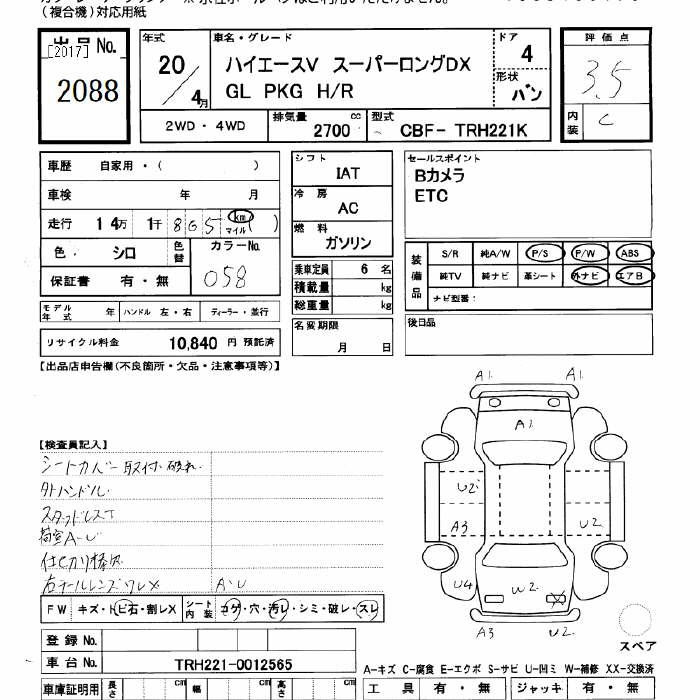 (複合機)対応用紙
出品No.
[2017]
2088
年式
20/4月
車名・グレード
ハイエースV スーパーロングDX
GL PKG H/R
ドア
4
形状
バン
評価点
3.5
内装
C
2WD・4WD
排気量
2700 cc
型式
CBF- TRH221K
車歴 自家用・( )
車検 年 月
走行 14万 1千 865 km マイル ( )
色 シロ 色替
カラーNo.
058
保証書 有・無
モデル年式 年 ハンドル 左・右 ディーラー・並行
リサイクル料金 10,840 円 預託済
シフト
IAT
冷房
AC
燃料
ガソリン
乗車定員 6 名
積載量 kg
総重量 kg
名変期限
月 日
セールスポイント
Bカメラ
ETC
装備品
S/R 純A/W P/S P/W ABS
純TV 純ナビ 革シート 外ナビ エアB
ナビ型番:
後日品
【出品店申告欄(不良箇所・欠品・注意事項等)】
【検査員記入】
シートカバー取付・破れ
タトハンドル
スタッドレスT
荷室A・U
右テールレンズワレX
A・U
FW キズ・トビ石・割レX
シート内装 コゲ・穴・汚レ・シミ・破レ・スレ
登録No.
車台No. TRH221-0012565
車庫証明用 長さ cm 幅 cm 高さ cm
A1 A1
A1
U2
A3 U2
U4 W2
A3 U2
スペア
A-キズ C-腐食 E-エクボ S-サビ U-凹ミ W-補修 XX-交換済
工具 有・無 ジャッキ 有・無